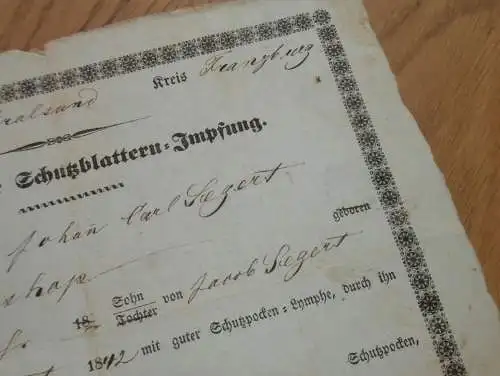 ralsund Kreis Franzburg
Schutzblattern-Impfung.
Johan Carl Segert
geboren
shap
18 Sohn
Tochter von Jacob Segert
1842 mit guter Schutzpocken-Lymphe, durch ihn
Schutzpocken,